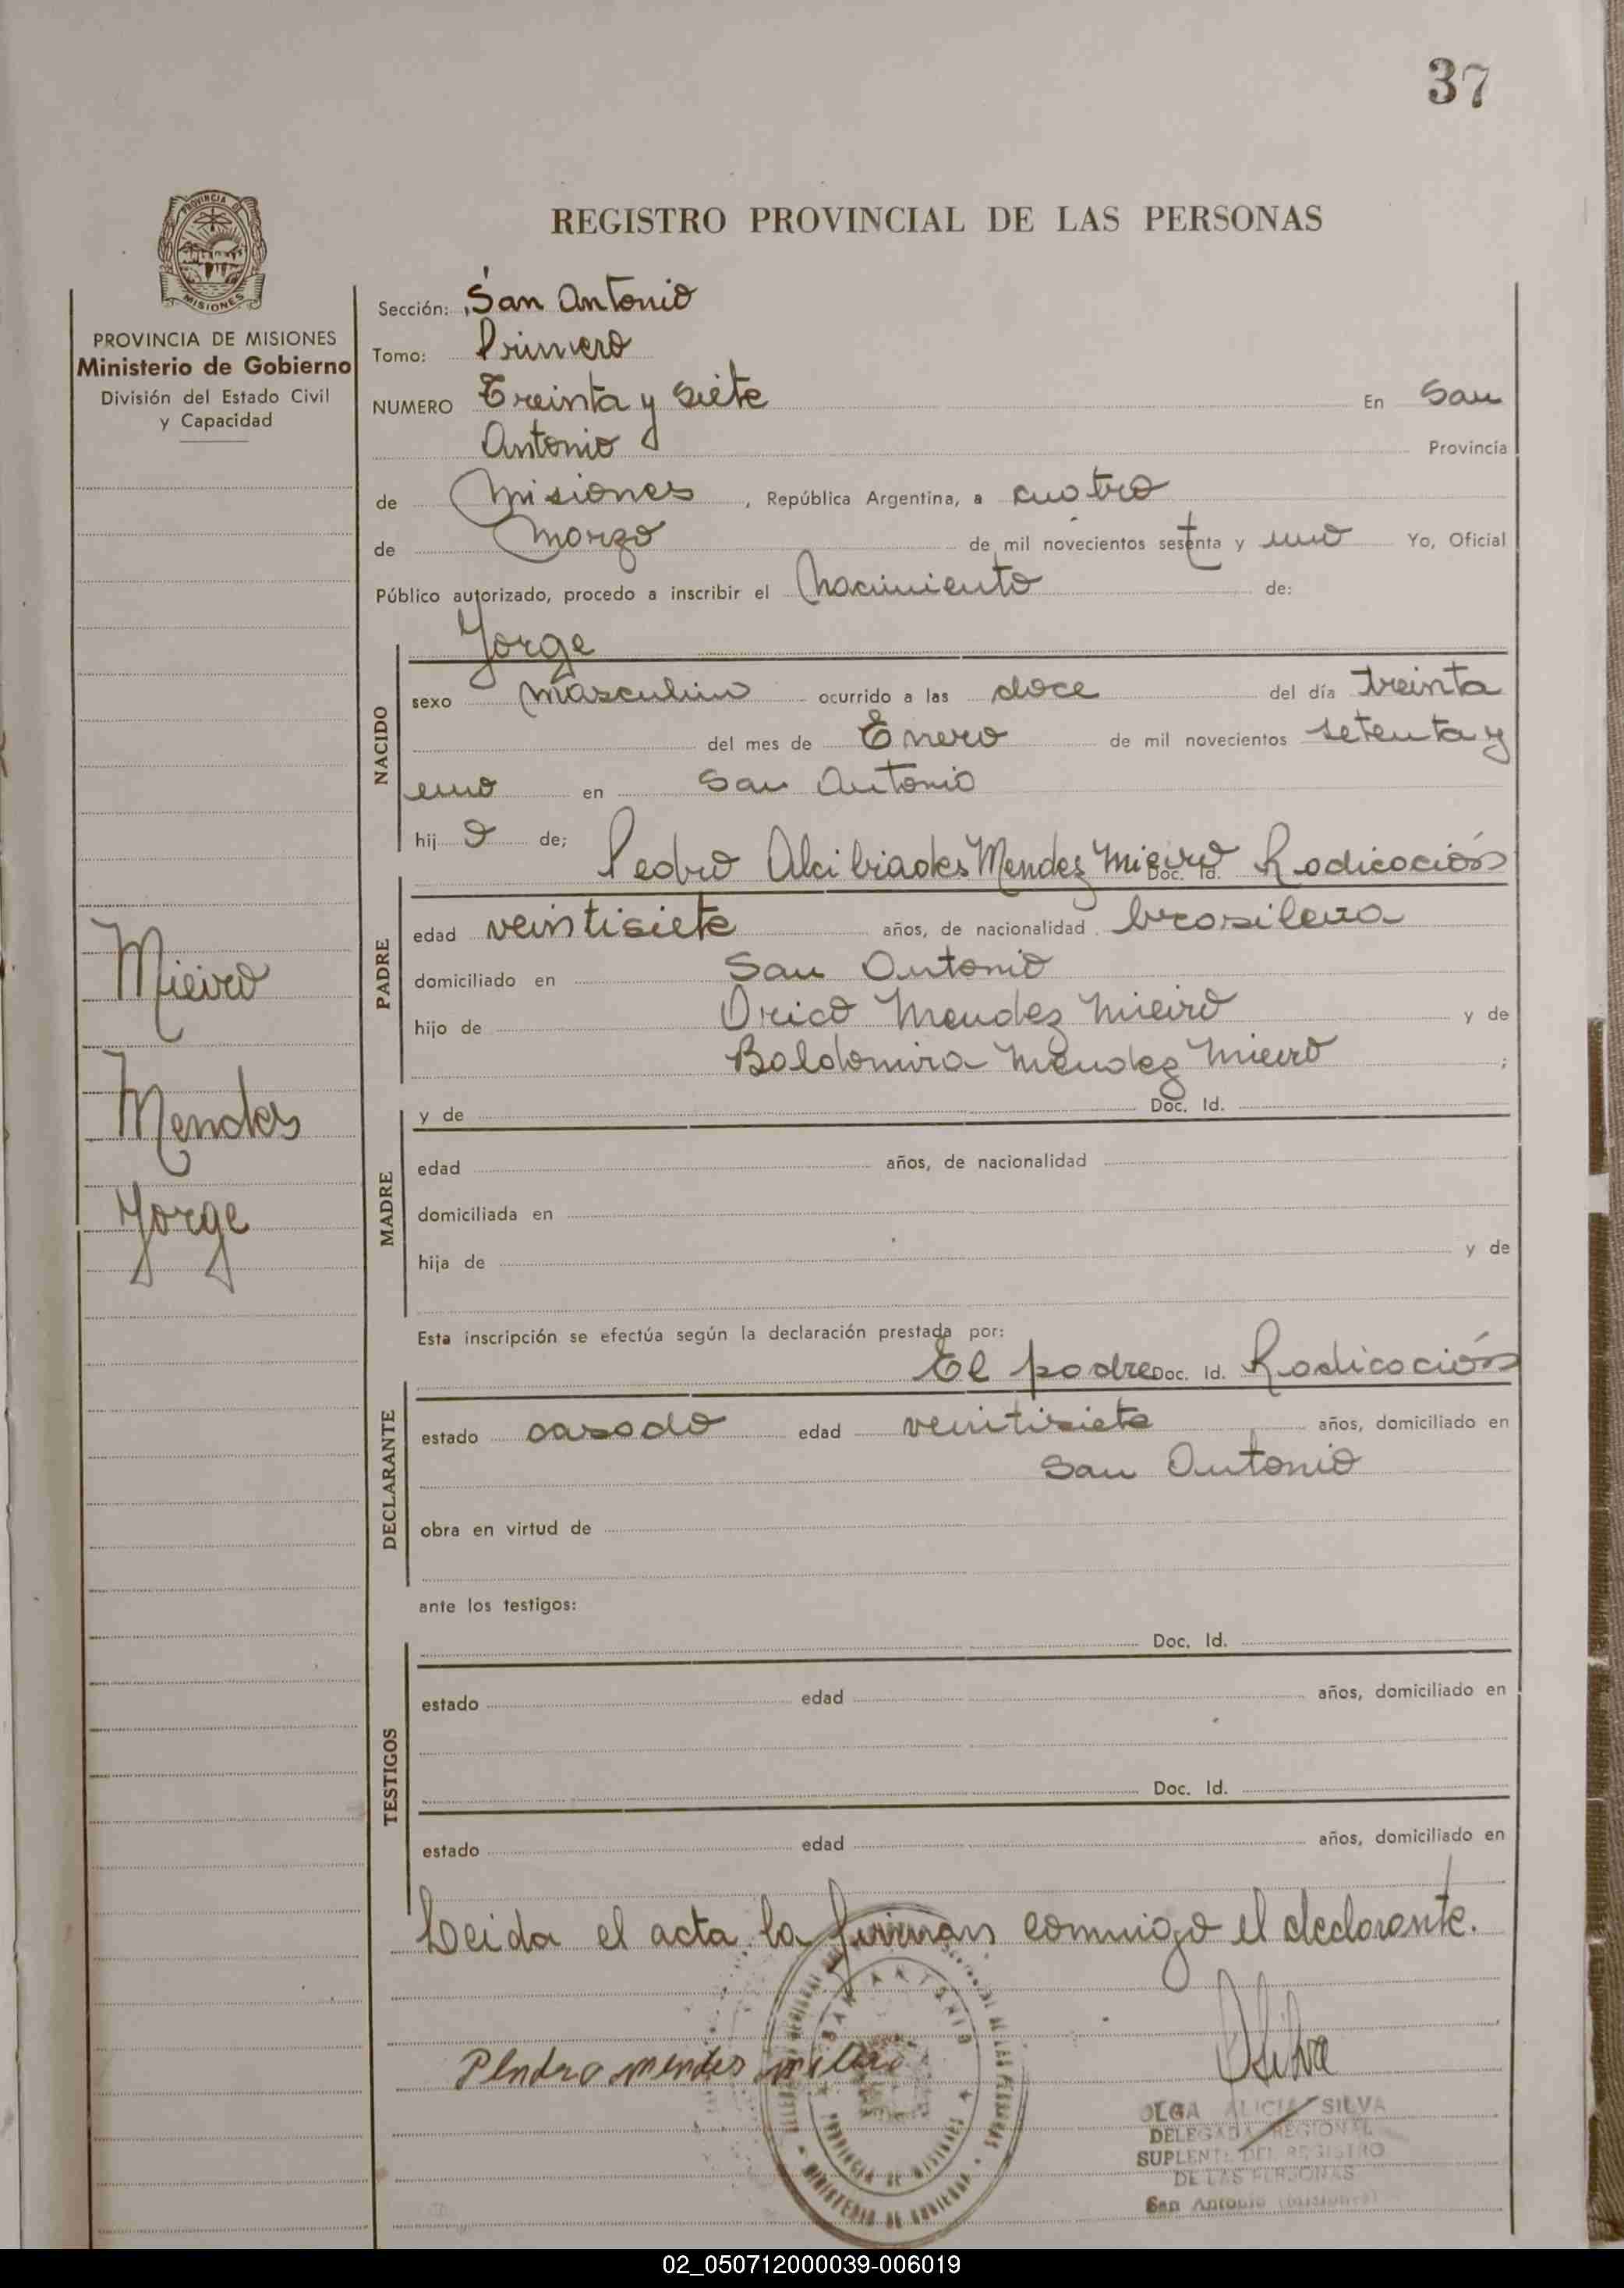 37
REGISTRO PROVINCIAL DE LAS PERSONAS
PROVINCIA DE MISIONES
Ministerio de Gobierno
División del Estado Civil
y Capacidad
Sección: San Antonio
Tomo: Primero
NUMERO Treinta y siete En San
Antonio Provincia
de Misiones, República Argentina, a cuatro
de Marzo de mil novecientos sesenta y uno Yo, Oficial
Público autorizado, procedo a inscribir el Nacimiento de:
Jorge
NACIDO
sexo masculino ocurrido a las doce del día treinta
del mes de Enero de mil novecientos setenta y
uno en San Antonio
hij o de;
Pedro Alcibiades Mendez Mieiro Doc. Id. Radicación
PADRE
edad veintisiete años, de nacionalidad brasilera
domiciliado en San Antonio
hijo de Orico Mendez Mieiro y de
Baldomira Mendez Mieiro ;
Mieiro
Mendes
Jorge
MADRE
y de Doc. Id.
edad años, de nacionalidad
domiciliada en
hija de y de
Esta inscripción se efectúa según la declaración prestada por:
El padre Doc. Id. Radicación
DECLARANTE
estado casado edad veintisiete años, domiciliado en
San Antonio
obra en virtud de
ante los testigos:
TESTIGOS
Doc. Id.
estado edad años, domiciliado en
Doc. Id.
estado edad años, domiciliado en
Leida el acta la firman conmigo el declarante.
SAN ANTONIO
PROVINCIA DE MISIONES
MINISTERIO DE GOBIERNO
DE LAS PERSONAS
Pendro mendes
OSilva
OLGA ALICIA SILVA
DELEGADA REGIONAL
SUPLENTE DEL REGISTRO
DE LAS PERSONAS
San Antonio (Misiones)
02_050712000039-006019